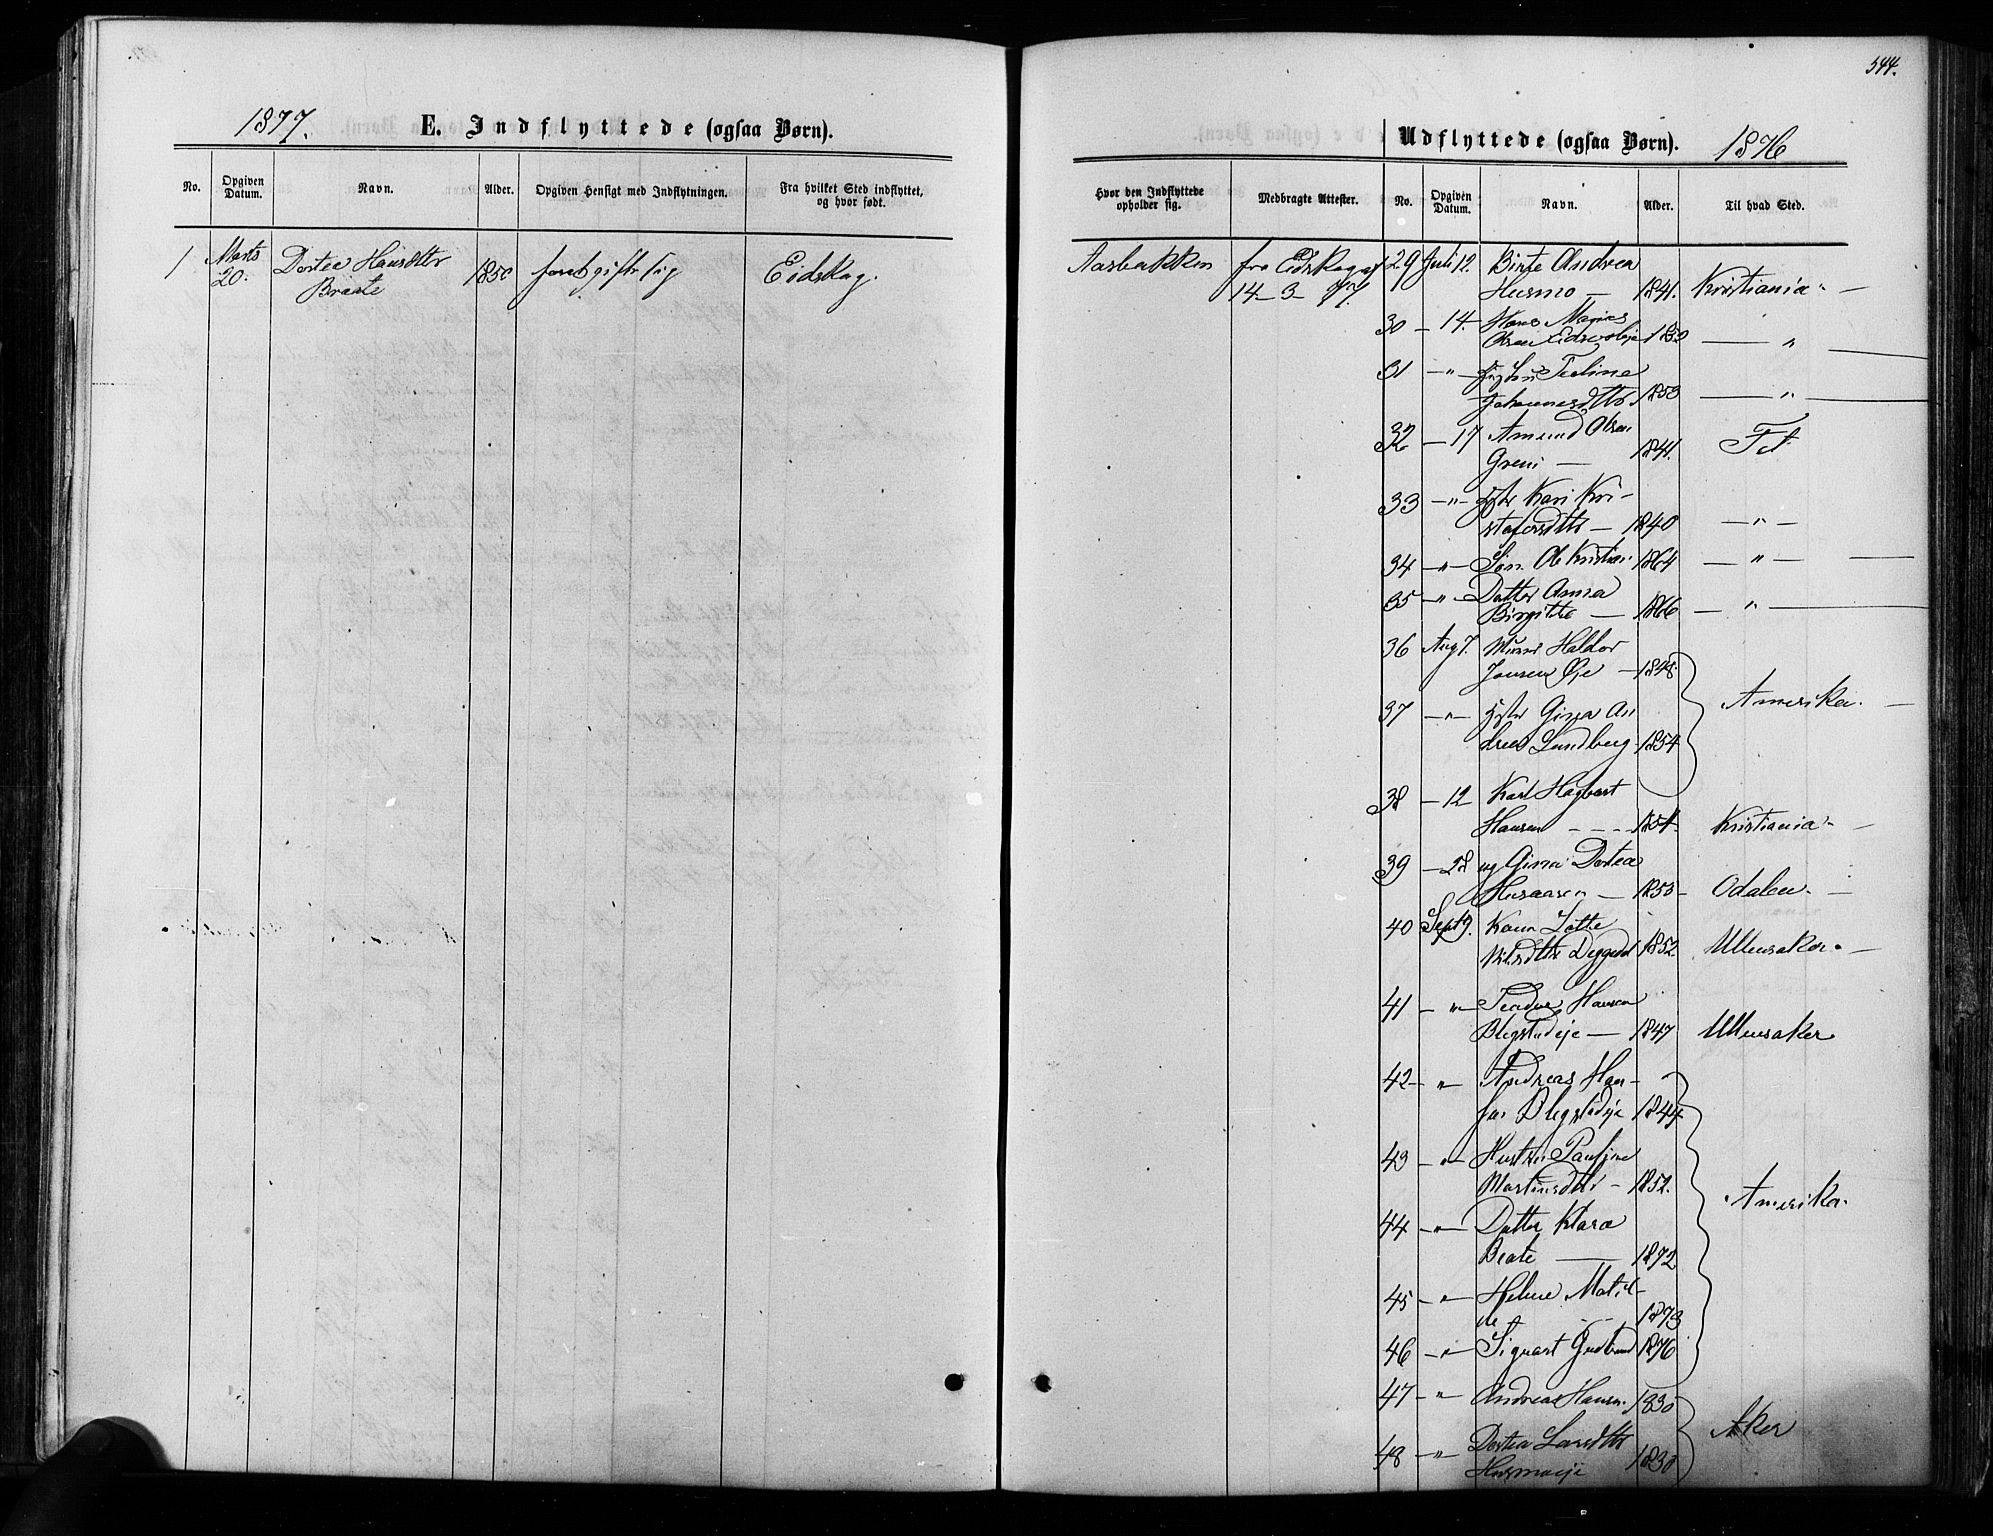 544.
1877.
E. Indflyttede (ogsaa Børn).
No.
Opgiven Datum.
Navn.
Alder.
Opgiven Hensigt med Indflytningen.
Fra hvilket Sted indflyttet, og hvor født.
1 Marts 20. Dortea Hansdtter 1850 gifte sig Eidskog.
Braate
Udflyttede (ogsaa Børn). 1876
Hvor den Indflyttede opholder sig.
Medbragte Attester.
No.
Opgiven Datum.
Navn.
Alder.
Til hvad Sted.
Aasbakken fra Eidskog
14-3-77
29 Juli 12. Birte Andrea
Husmo — 1841. Kristiania. —
30 — 14. Hans
Olsen — " —
31 — " —
Johannesdtter 1853 — " —
32 — 17 Amund Olsen
Greni — 1841. Fet
33 — " — Hstr Kari Kri-
stofersdtter — 1840 — " —
34 — " — Søn Ole Kristian 1864 — " —
35 — " — Datter Anna
Birgitte — 1866 — " —
36 Aug 7. Haldor
Jonsen Øje — 1848.
37 — " — Hstr Gina An
drea Lundberg 1854 Amerika. —
38 — 12 Karl Hagbart
Hansen — — — 1854. Kristiania —
39 — 28 Gina Dortea
Husaasen — 1853 — Odalen. —
40 Sept 9. Lotte
1852 Ullensaker. —
41 — " — Hansen
Blegstadeje — 1847 Ullensaker
42 — " Andreas Han-
sen Blegstadeje 1844.
43 — " — Hustru Pauline
Martinsdtter — 1852. Amerika.
44 — " — Datter Klara
Beate — 1872
45 — " — Helene Matil-
de 1873
46 — " — Sigvart Gudbrand 1876
47 — " Andreas Hansen. 1830
48 — " Dortea Larsdtter
Husmoeje 1830 Aker